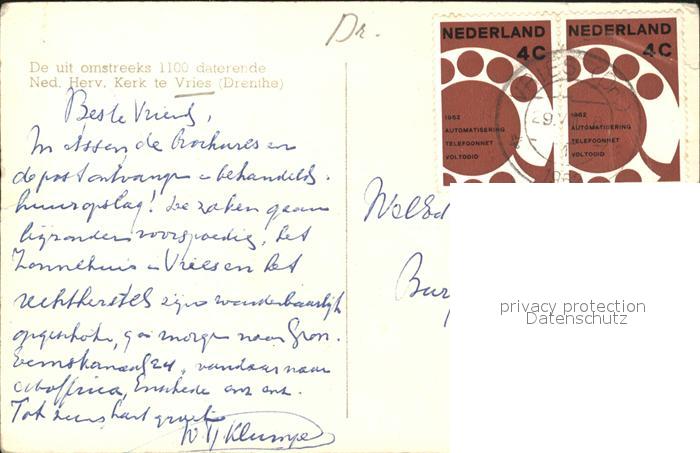 Dr.
De uit omstreeks 1100 daterende
Ned. Herv. Kerk te Vries (Drenthe)
NEDERLAND
4C
1962
AUTOMATISERING
TELEFOONNET
VOLTOOID
NEDERLAND
4C
1962
AUTOMATISERING
TELEFOONNET
VOLTOOID
VRIES
29
Beste Vriend,
Intussen de brochures en
de post ontvangen en behandeld.
huuropslag! De zaken gaan
bijzonder voorspoedig, het
Zonnehuis in Vries en het
rechtherstel zijn wonderbaarlijk
opgeschoten, ga morgen naar Gron.
Eemskanaal 24, vandaar naar
Enschede enz enz.
Tot ziens hart groet
Klumpe
privacy protection
Datenschutz